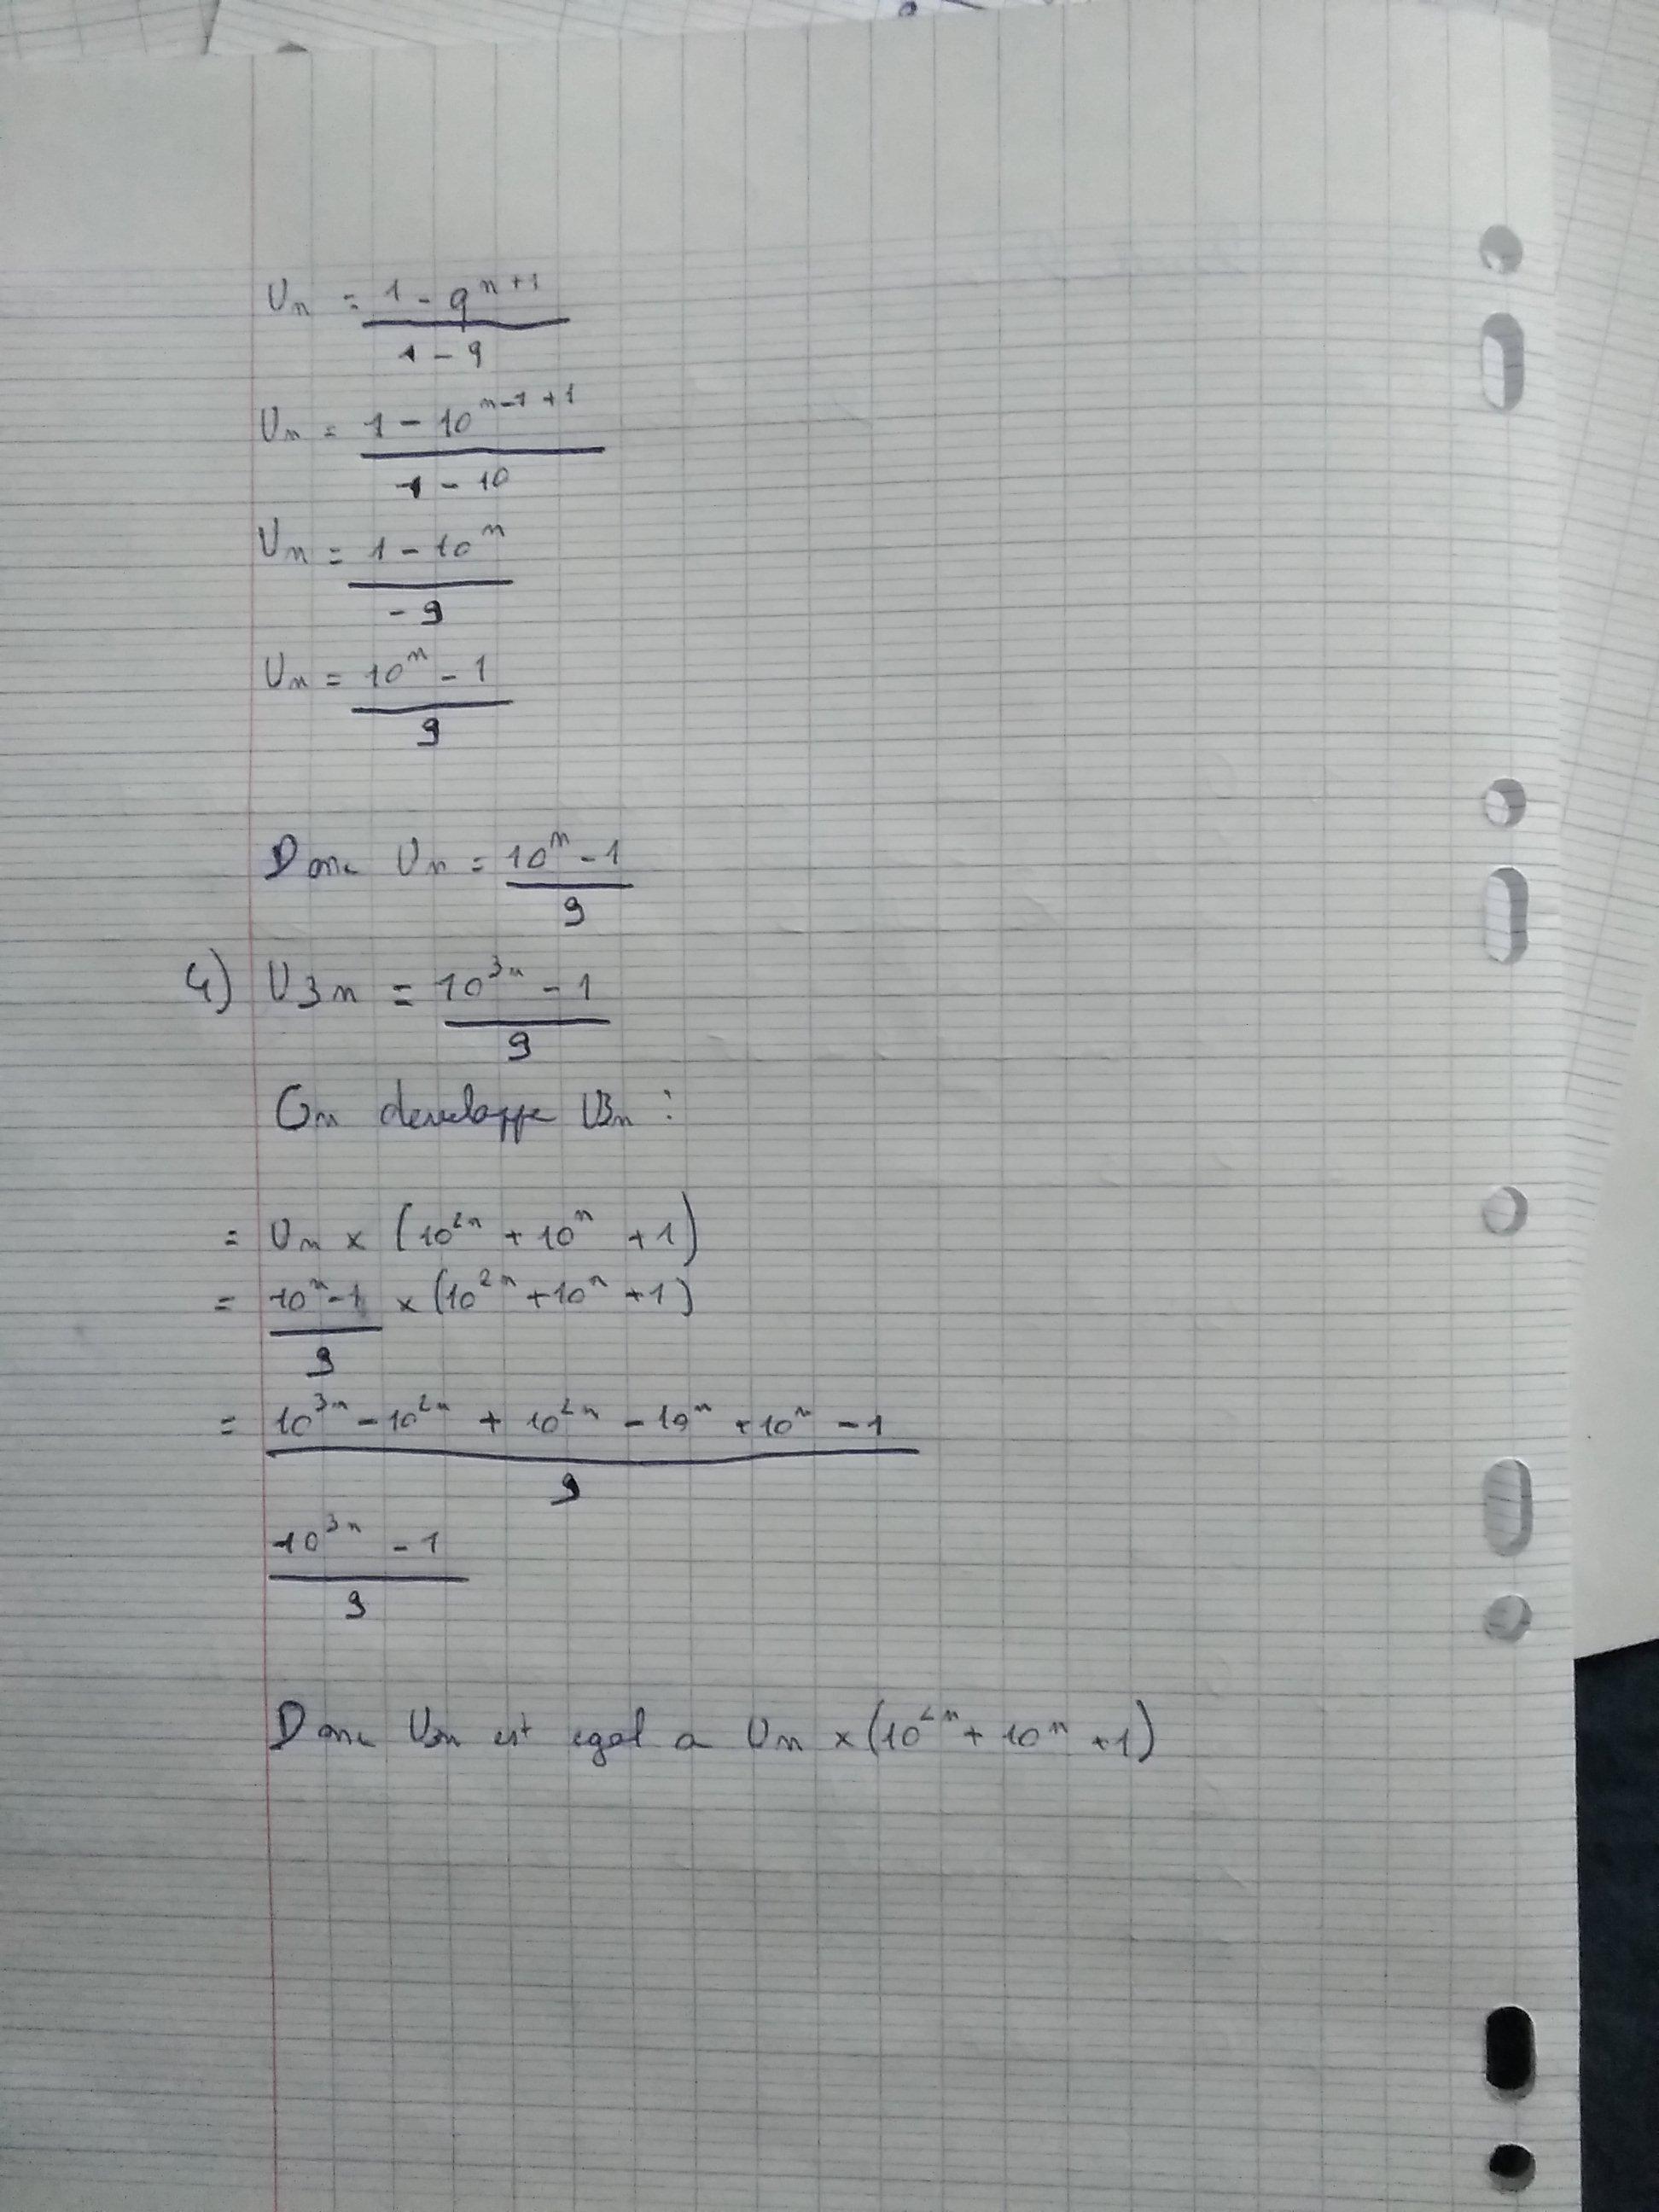 Un = (1 - q^(n+1)) / (1 - q)
Un = (1 - 10^(n-1+1)) / (1 - 10)
Un = (1 - 10^n) / (-9)
Un = (10^n - 1) / 9
Donc Un = (10^n - 1) / 9
4) U3n = (10^(3n) - 1) / 9
On developpe U3n :
= Un × (10^(2n) + 10^n + 1)
= (10^n - 1) / 9 × (10^(2n) + 10^n + 1)
= (10^(3n) - 10^(2n) + 10^(2n) - 10^n + 10^n - 1) / 9
(10^(3n) - 1) / 9
Donc U3n est egal a Un × (10^(2n) + 10^n + 1)